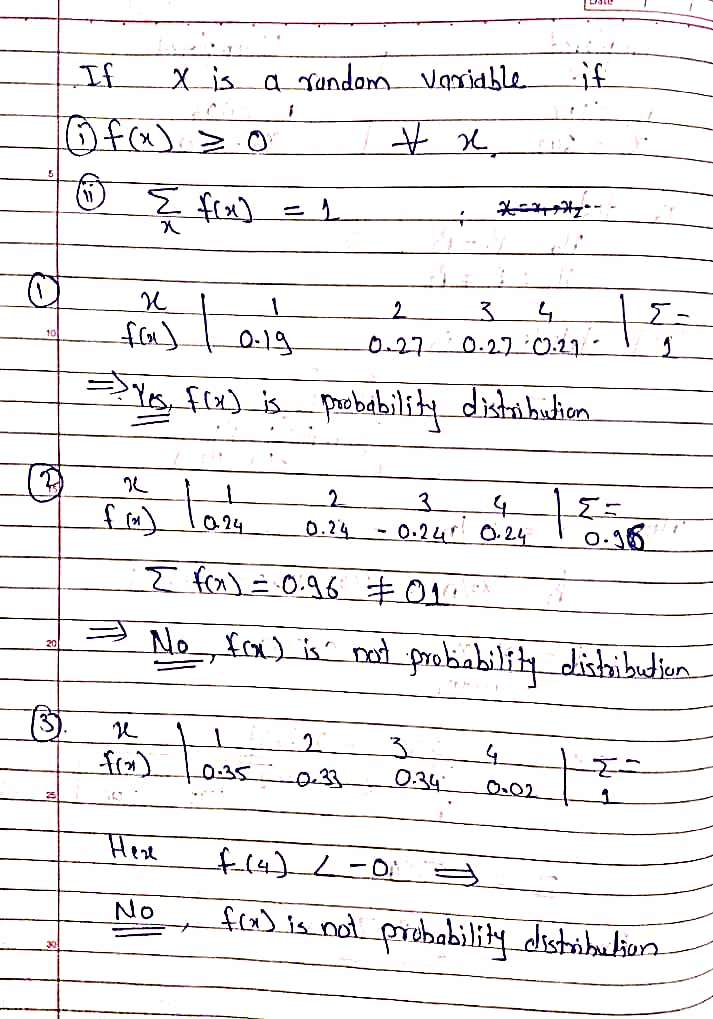 Date
If X is a random variable if
(i) f(x) ≥ 0 ∀ x.
(ii) Σx f(x) = 1 ;
① x | 1 2 3 4 | Σ=
f(x) | 0.19 0.27 0.27 0.27 | 1
⇒ Yes, f(x) is probability distribution
② x | 1 2 3 4 | Σ=
f(x) | 0.24 0.24 - 0.24 0.24 | 0.96
Σ f(x) = 0.96 ≠ 01.
⇒ No, f(x) is not probability distribution
③. x | 1 2 3 4 | Σ=
f(x) | 0.35 0.33 0.34 0.02 | 1
Here f(4) < -0. ⇒
No, f(x) is not probability distribution
5
10
20
25
30